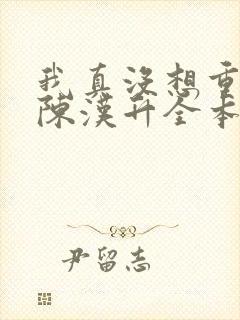 我真没想重
陈漢升全本
尹留志